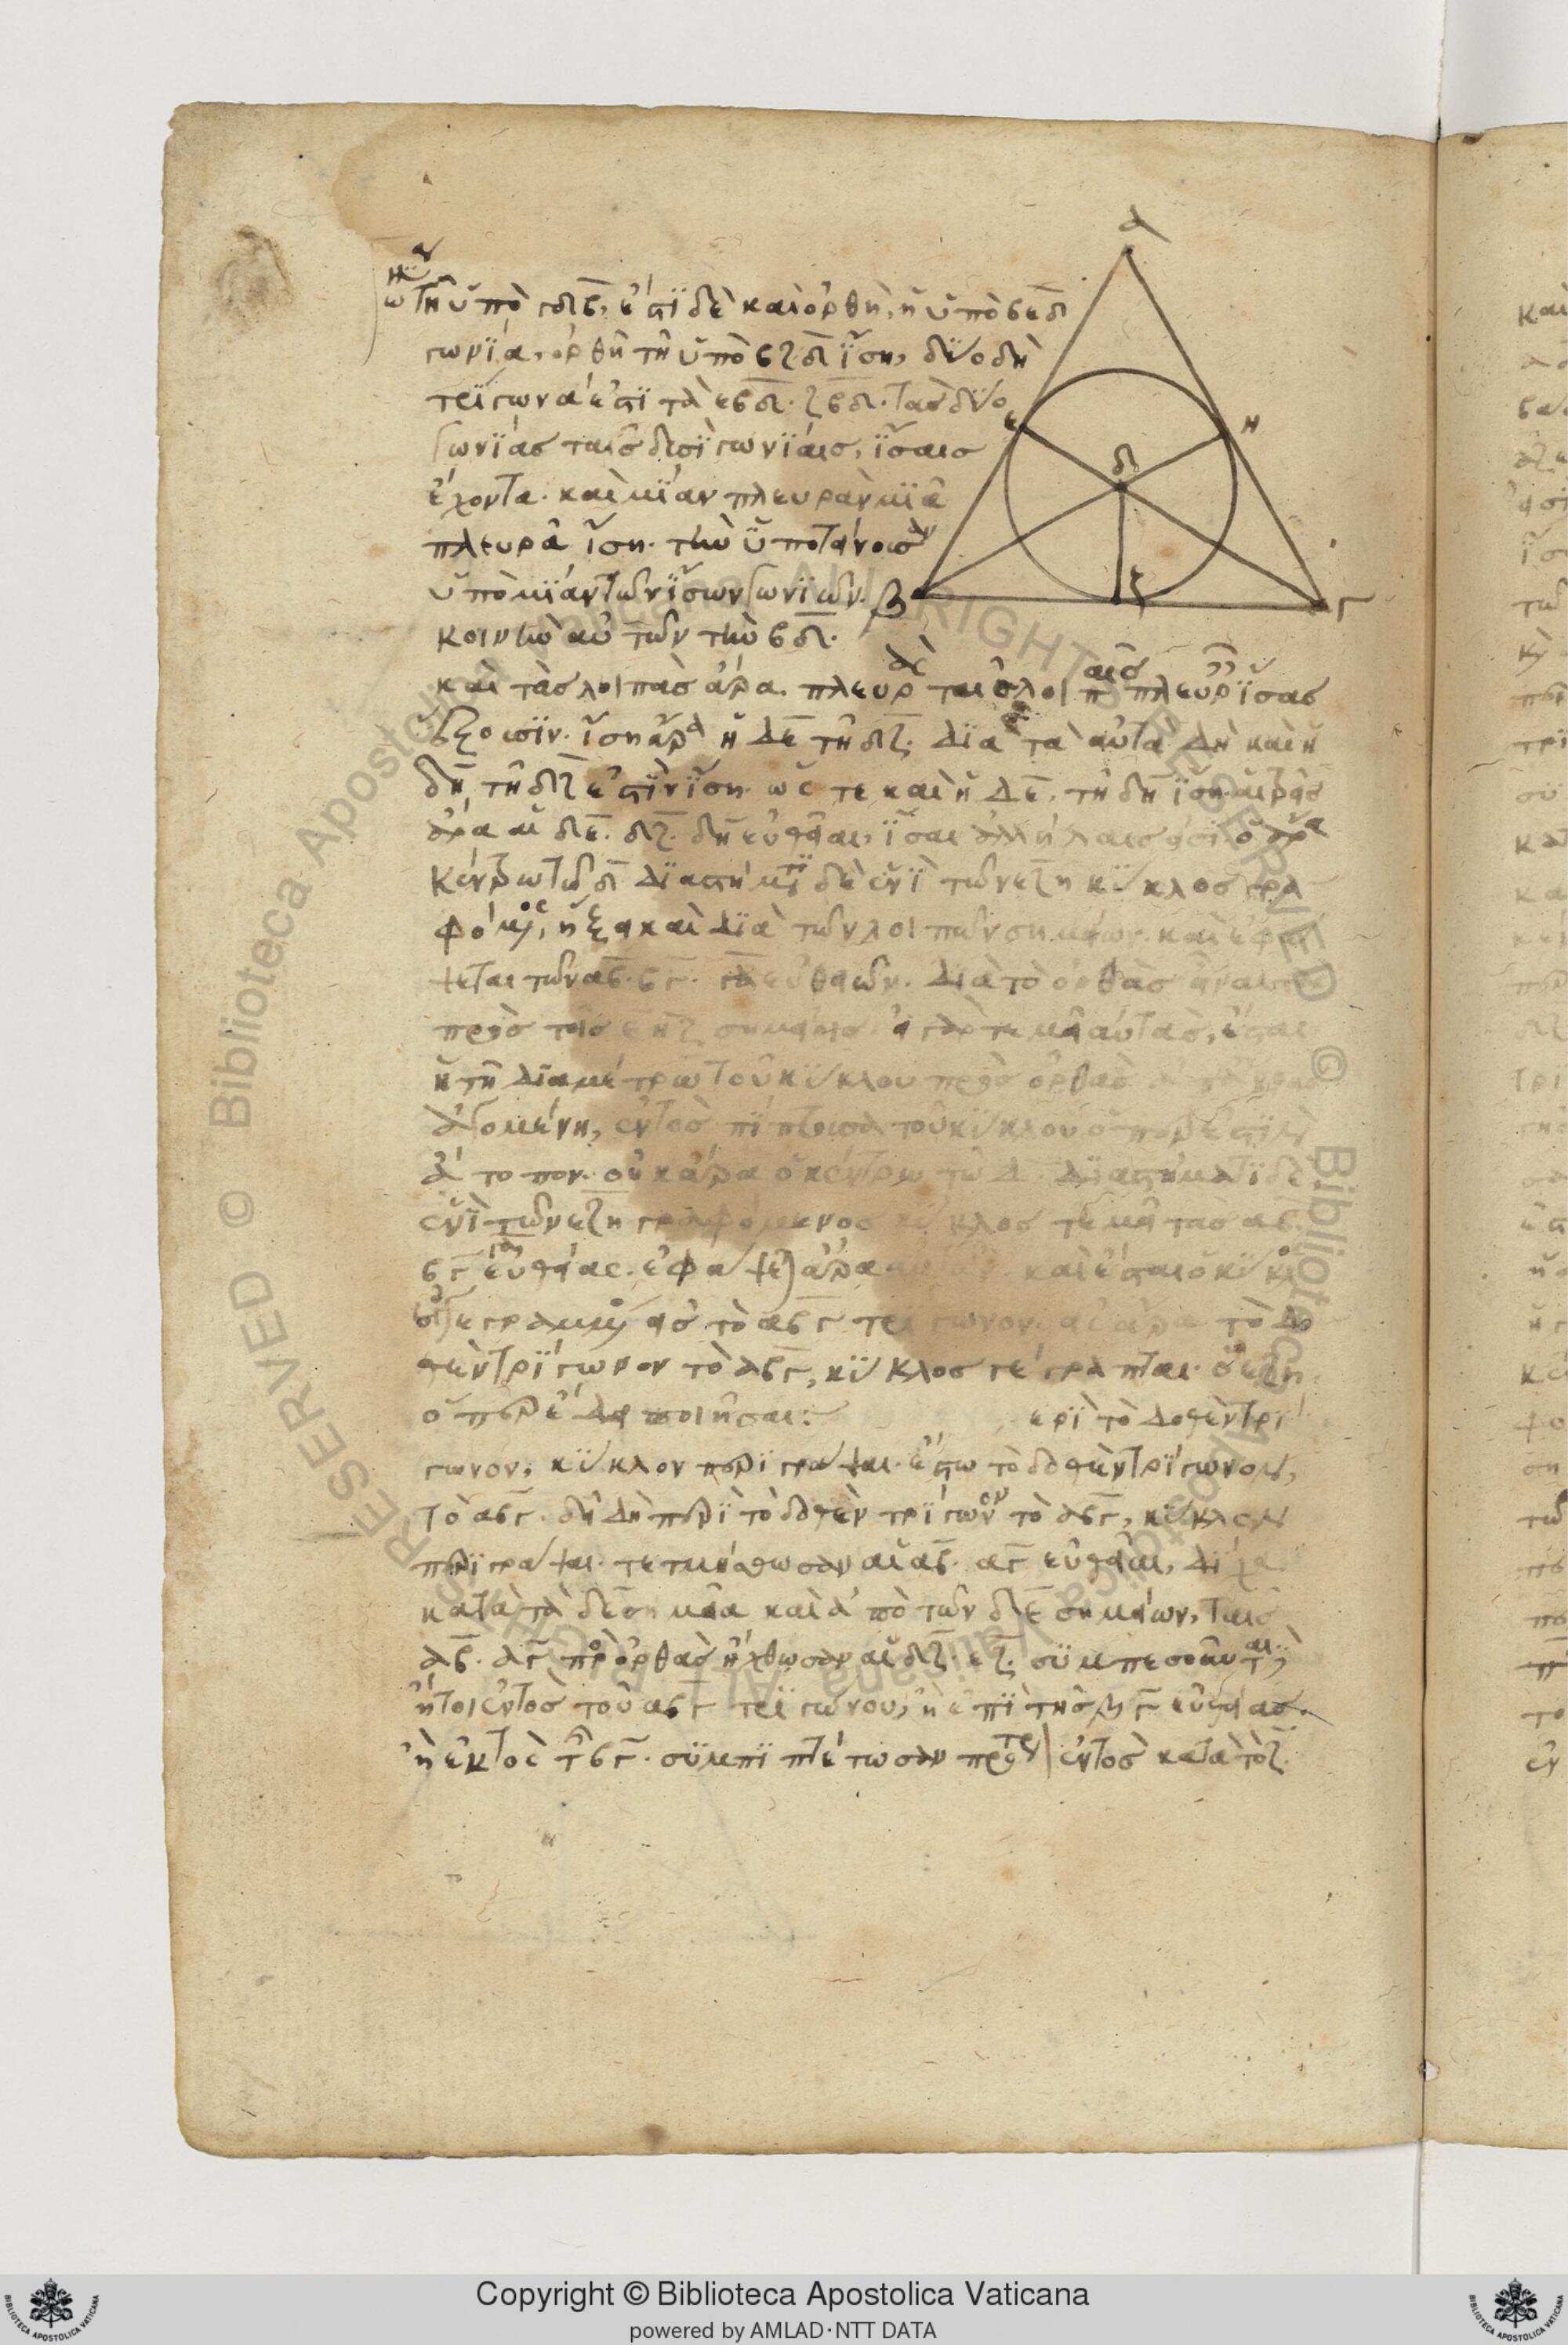 α
τῆ ὑπὸ γδβ, ἐστὶ δὲ καὶ ὀρθὴ, ἡ ὑπὸ βεδ
γωνΐα, ὀρθὴ τῆ ὑπὸ βζδ ἴση, δύο δὴ
τρΐγωνα ἐστὶ τὰ εβδ. ζβδ. τὰσ δύο
γωνΐασ ταῖσ δισὶ γωνΐαισ, ἴσαισ
ε
η
δ
ἔχοντα. καὶ μΐαν πλευρὰν μιᾶ
πλευρᾶ ἴση. τὴν ὑποτείνουσαν
ὑπὸ μΐαν τῶν ἴσων γωνιῶν.
β
ζ
γ
κοινὴν αὐτῶν τὴν βδ.
καὶ τὰσ λοιπὰσ ἄρα πλευρὰσ ταῖσ λοιπαῖσ πλευραῖσ ἴσασ
ἕξουσιν. ἴση ἄρα ἡ δε τῆ δζ. διὰ τὰ αὐτὰ δὴ καὶ ἡ
δη τῆ δζ ἐστὶν ἴση. ὥστε καὶ ἡ δε. τῆ δη ἴση. αἱ τρεῖσ
ἄρα αἱ δε. δζ. δη εὐθεῖαι, ἴσαι ἀλλήλαισ εἰσὶ ὁ ἄρα
κέντρω τῶ δ διαστήματι δὲ ἑνὶ τῶν εζη κύκλοσ γρα
φόμενοσ, ἥξει καὶ διὰ τῶν λοιπῶν σημείων. καὶ ἐφά
ψεται τῶν αβ. βγ. γα εὐθειῶν. διὰ τὸ ὀρθὰσ εἶναι
πρὸσ τοῖσ εηζ σημείοισ. εἰ γὰρ τεμεῖ αὐτὰσ, ἔσται
ἡ τῆ διαμέτρω τοῦ κύκλου πρὸσ ὀρθὰσ
ἀγομένη, ἐντὸσ πίπτουσα τοῦ κύκλου ὅπερ ἐστὶν
ἄτοπον. οὐκ ἄρα ὁ κέντρω τῶ δ. διαστήματι δὲ
ἑνὶ τῶν εζη γραφόμενοσ κύκλοσ τεμεῖ τὰσ αβ.
βγ εὐθείασ. ἐφάψεται ἄρα καὶ ἔσται ὁ κύκλοσ
γεγραμμένοσ εἰσ τὸ αβγ τρΐγωνον. εἰσ ἄρα τὸ δο
θὲν τρΐγωνον τὸ αβγ, κύκλοσ γέγραπται ὁ εζη.
ὅπερ ἔδει ποιῆσαι: ερὶ τὸ δοθὲν τρΐ
γωνον, κύκλον περιγράψαι. ἔστω τὸ δοθὲν τρΐγωνον,
τὸ αβγ. δεῖ δὴ περὶ τὸ δοθὲν τρΐγωνον τὸ αβγ, κύκλον
περιγράψαι. τετμήσθωσαν αἱ αβ. αγ εὐθεῖαι, δίχα
κατὰ τὰ δε σημεῖα καὶ ἀπὸ τῶν δε σημείων, ταῖσ
αβ. αγ πρὸσ ὀρθὰσ ἤχθωσαν αἱ δζ. εζ. συμπεσοῦνται δὴ
ἤτοι ἐντὸσ τοῦ αβγ τρΐγώνου, ἢ ἐπὶ τῆσ βγ εὐθείασ.
ἢ ἐκτὸσ τῆσ βγ. συμπιπτέτωσαν πρότερον ἐντὸσ κατὰ τὸ ζ.
Copyright © Biblioteca Apostolica Vaticana
powered by AMLAD·NTT DATA